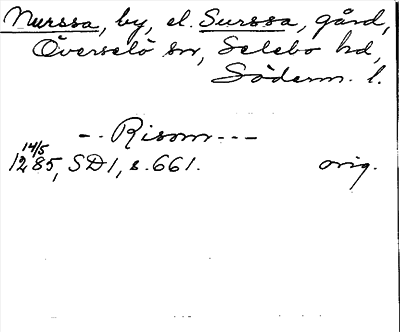 Nurssa, by, el. Surssa, gård,
Överselö sn, Selebo hd,
Söderm. l.
-- Risom ---
14/5
1285, SD1, s. 661. orig.